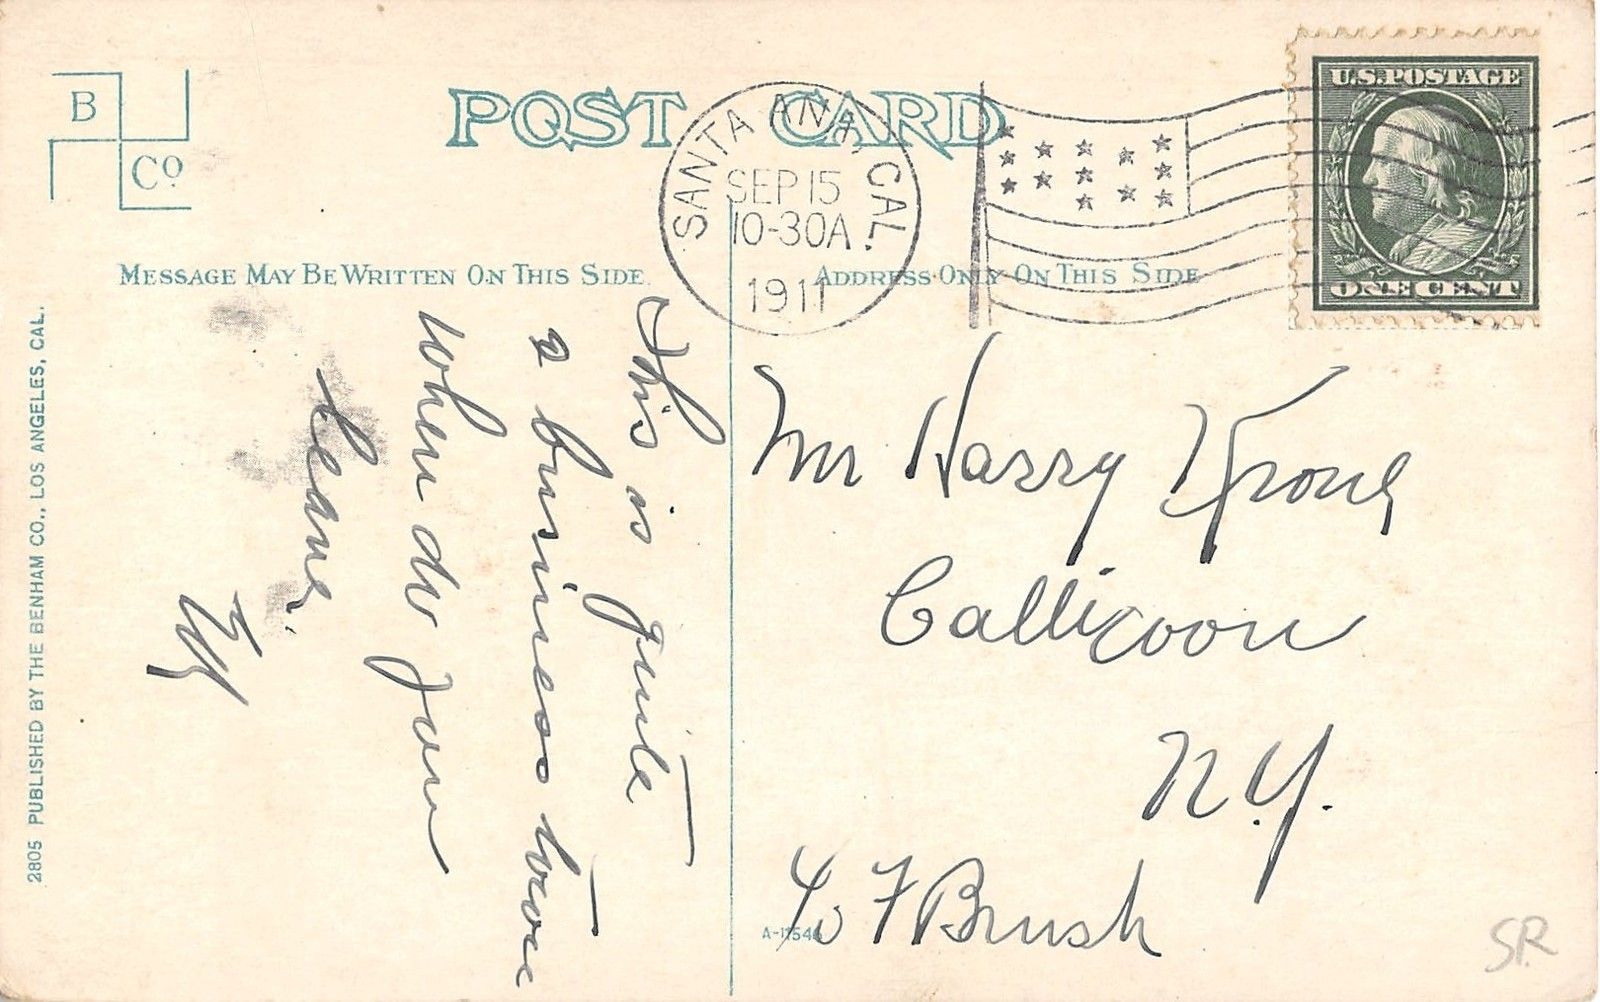 B
Co
POST CARD
SANTA ANA, CAL.
SEP 15
10-30A.
1911
U.S. POSTAGE
ONE CENT
MESSAGE MAY BE WRITTEN ON THIS SIDE.
ADDRESS ONLY ON THIS SIDE
This is quite
a business town
When do you
leave.
Mr Harry Krony
Callicoon
N.Y.
c/o F Brush
A-11546
SR
2805 PUBLISHED BY THE BENHAM CO., LOS ANGELES, CAL.